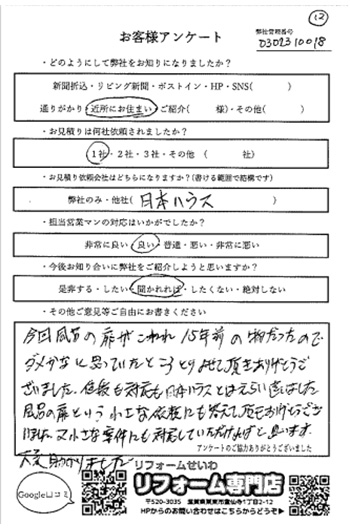 ⑫
お客様アンケート
弊社管理番号
0302310018
・どのようにして弊社をお知りになりましたか？
新聞折込・リビング新聞・ポストイン・HP・SNS(　　　)
通りがかり・近所にお住まい・ご紹介(　　　様)・その他(　　　)
・お見積りは何社依頼されましたか？
1社・2社・3社・その他 (　　　社)
・お見積り依頼会社はどちらになりますか？(書ける範囲で結構です)
弊社のみ・他社( 日本ハウス )
・担当営業マンの対応はいかがでしたか？
非常に良い・良い・普通・悪い・非常に悪い
・今後お知り合いに弊社をご紹介しようと思いますか？
是非する・したい・聞かれれば・したくない・絶対しない
・その他ご意見等ご自由にお書きください
今回風呂の扉がこわれ 15年前の物だったので
ダメかなと思っていたところとりよせて頂きありがとうご
ざいました。値段も対応も日本ハウスとはえらい違いました
風呂の扉という小さな依頼にも答えて頂きありがとうござ
います。又小さな案件にも対応していただければと思います。
アンケートのご協力ありがとうございました
大変助かりました
リフォームせいわ
Google口コミ
リフォーム専門店
〒520-3035 滋賀県栗東市霊仙寺1丁目2-12
HPからのお問い合わせはこちらからどうぞ▶